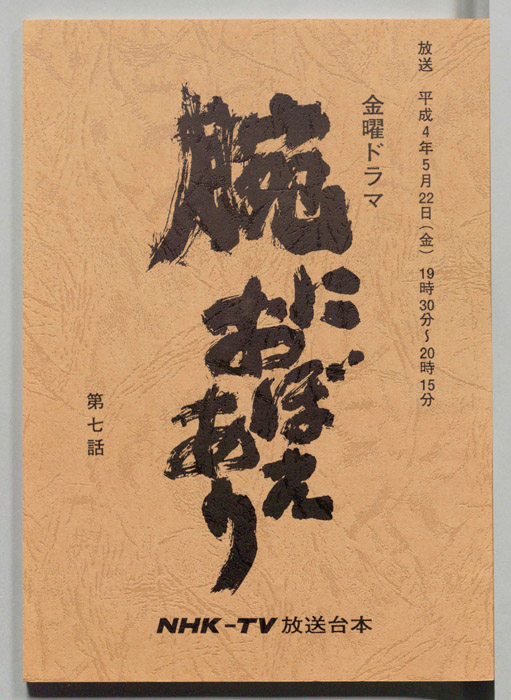 放送　平成4年5月22日（金）　19時30分〜20時15分
金曜ドラマ
腕におぼえあり
第七話
NHK-TV 放送台本